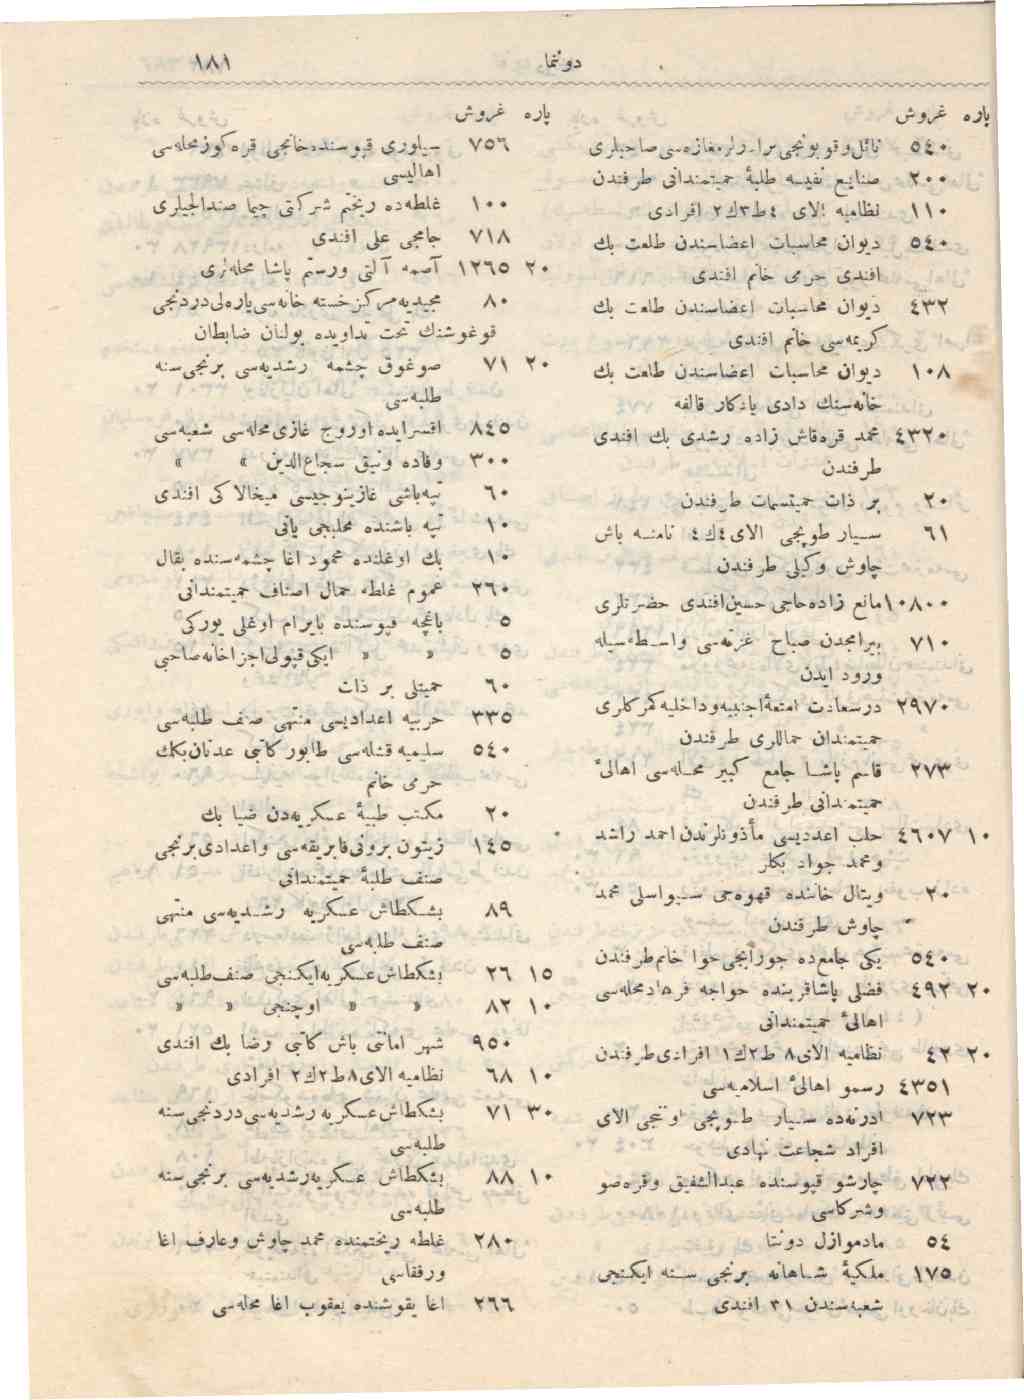 دوننما ١٨١
پاره غروش
٥٤٠ نائل وقویونجی برادرلر مغازه‌سی صاحبلری
٢٠٠ صنایع نفیسه طلبهٔ حمیتمندانی طرفندن
١١٠ نظامیه الای ٤ ط ٣ ك ٢ افرادی
٥٤٠ دیوان محاسبات اعضاسندن طلعت بك
افندی حرمی خانم افندی
٤٣٢ دیوان محاسبات اعضاسندن طلعت بك
كریمه‌سی خانم افندی
١٠٨ دیوان محاسبات اعضاسندن طلعت بك
خانه‌سنك دادی یادكار قالفه
٤٣٢٠ محمد قره‌قاش زاده رشدی بك افندی
طرفندن
٢٠ بر ذات حمیتسمات طرفندن
٦١ سیار طوپجی الای ٤ ك ٤ نامنه باش
چاوش وكیلی طرفندن
١٠٨٠٠ مانع زاده حاجی حسین افندی حضرتلری
٧١٠ بیرامجدن صباح غزته‌سی واسطه‌سیله
ورود ایدن
٢٩٧٠ درسعادت امتعهٔ اجنبیه وداخلیه كمركلری
حمیتمندان حماللری طرفندن
٢٧٣ قاسم پاشا جامع كبیر محله‌سی اهالیٔ
حمیتمندانی طرفندن
١٠ ٤٦٠٧ حلب اعدادیسی مأذونلرندن احمد راشد
ومحمد جواد بكلر
٢٠ ویتال خاننده قهوه‌جی سیواسلی محمد
چاوش طرفندن
٥٤٠ یكی جامعده جورابجی حوا خانم طرفندن
٢٠ ٤٩٢ فضلی پاشا قربنده خواجه فرهاد محله‌سی
اهالیٔ حمیتمندانی
٢٠ ٤٢ نظامیه الای ٨ ط ٢ ك ١ افرادی طرفندن
٤٣٥١ رسمو اهالیٔ اسلامیه‌سی
٧٢٣ ادرنه‌ده سیار طوپجی اونجی الای
افراد شجاعت نهادی
٧٢٢ چارشو قپوسنده عبدالشفیق وقره‌صو
وشركاسی
٥٤ مادموازل دونتا
١٧٥ ملكیهٔ شاهانه برنجی سنه ایكنجی
شعبه‌سندن ٣١ افندی
پاره غروش
٧٥٦ سیلوری قپوسنده خانجی قره‌كوز محله‌سی
اهالیسی
١٠٠ غلطه‌ده ریختم شركتی چیما صندالجیلری
٧١٨ جامجی علی افندی
٢٠ ١٢٦٥ آصمه آلتی ورستم پاشا محله‌لری
٨٠ مجیدیه مركز خسته خانه‌سی یاره‌لی دردنجی
قوغوشنك تحت تداویده بولنان ضابطان
٢٠ ٧١ صوغوق چشمه رشدیه‌سی برنجی سنه
طلبه‌سی
٨٤٥ اقسرایده اوروج غازی محله‌سی شعبه‌سی
٣٠٠ وفاده ونیق سجاع‌الدین » »
٦٠ تپه‌باشی غازینوجیسی میخالاكی افندی
١٠ تپه باشنده محلبجی یانی
١٠ بك اوغلنده محمود اغا چشمه‌سنده بقال
٢٦٠ عموم غلطه حمال اصناف حمیتمندانی
٥ باغچه قپوسنده بایرام اوغلی یوركی
٥ » » ایكی قپولی اجزاخانه صاحبی
٦٠ حمیتلی بر ذات
٣٣٥ حربیه اعدادیسی منتهی صنف طلبه‌سی
٥٤٠ سلیمیه قشله‌سی طابور كاتبی عدنان بكك
حرمی خانم
٢٠ مكتب طبیهٔ عسكریه‌دن ضیا بك
١٤٥ زیتون برونی فابریقه‌سی واعدادی برنجی
صنف طلبهٔ حمیتمندانی
٨٩ بشكطاش عسكریه رشدیه‌سی منتهی
صنف طلبه‌سی
١٥ ٢٦ بشكطاش عسكریه ایكنجی صنف طلبه‌سی
١٠ ٨٢ » » اوچنجی » »
٩٥٠ شهر امانتی باش كاتبی رضا بك افندی
١٠ ٦٨ نظامیه الای ٨ ط ٢ ك ٢ افرادی
٣٠ ٧١ بشكطاش عسكریه رشدیه‌سی دردنجی سنه
طلبه‌سی
١٠ ٨٨ بشكطاش عسكریه رشدیه‌سی برنجی سنه
طلبه‌سی
٢٨٠ غلطه ریختمنده محمد چاوش وعارف اغا
ورفقاسی
٢٦٦ اغا یقوشنده یعقوب اغا محله‌سی